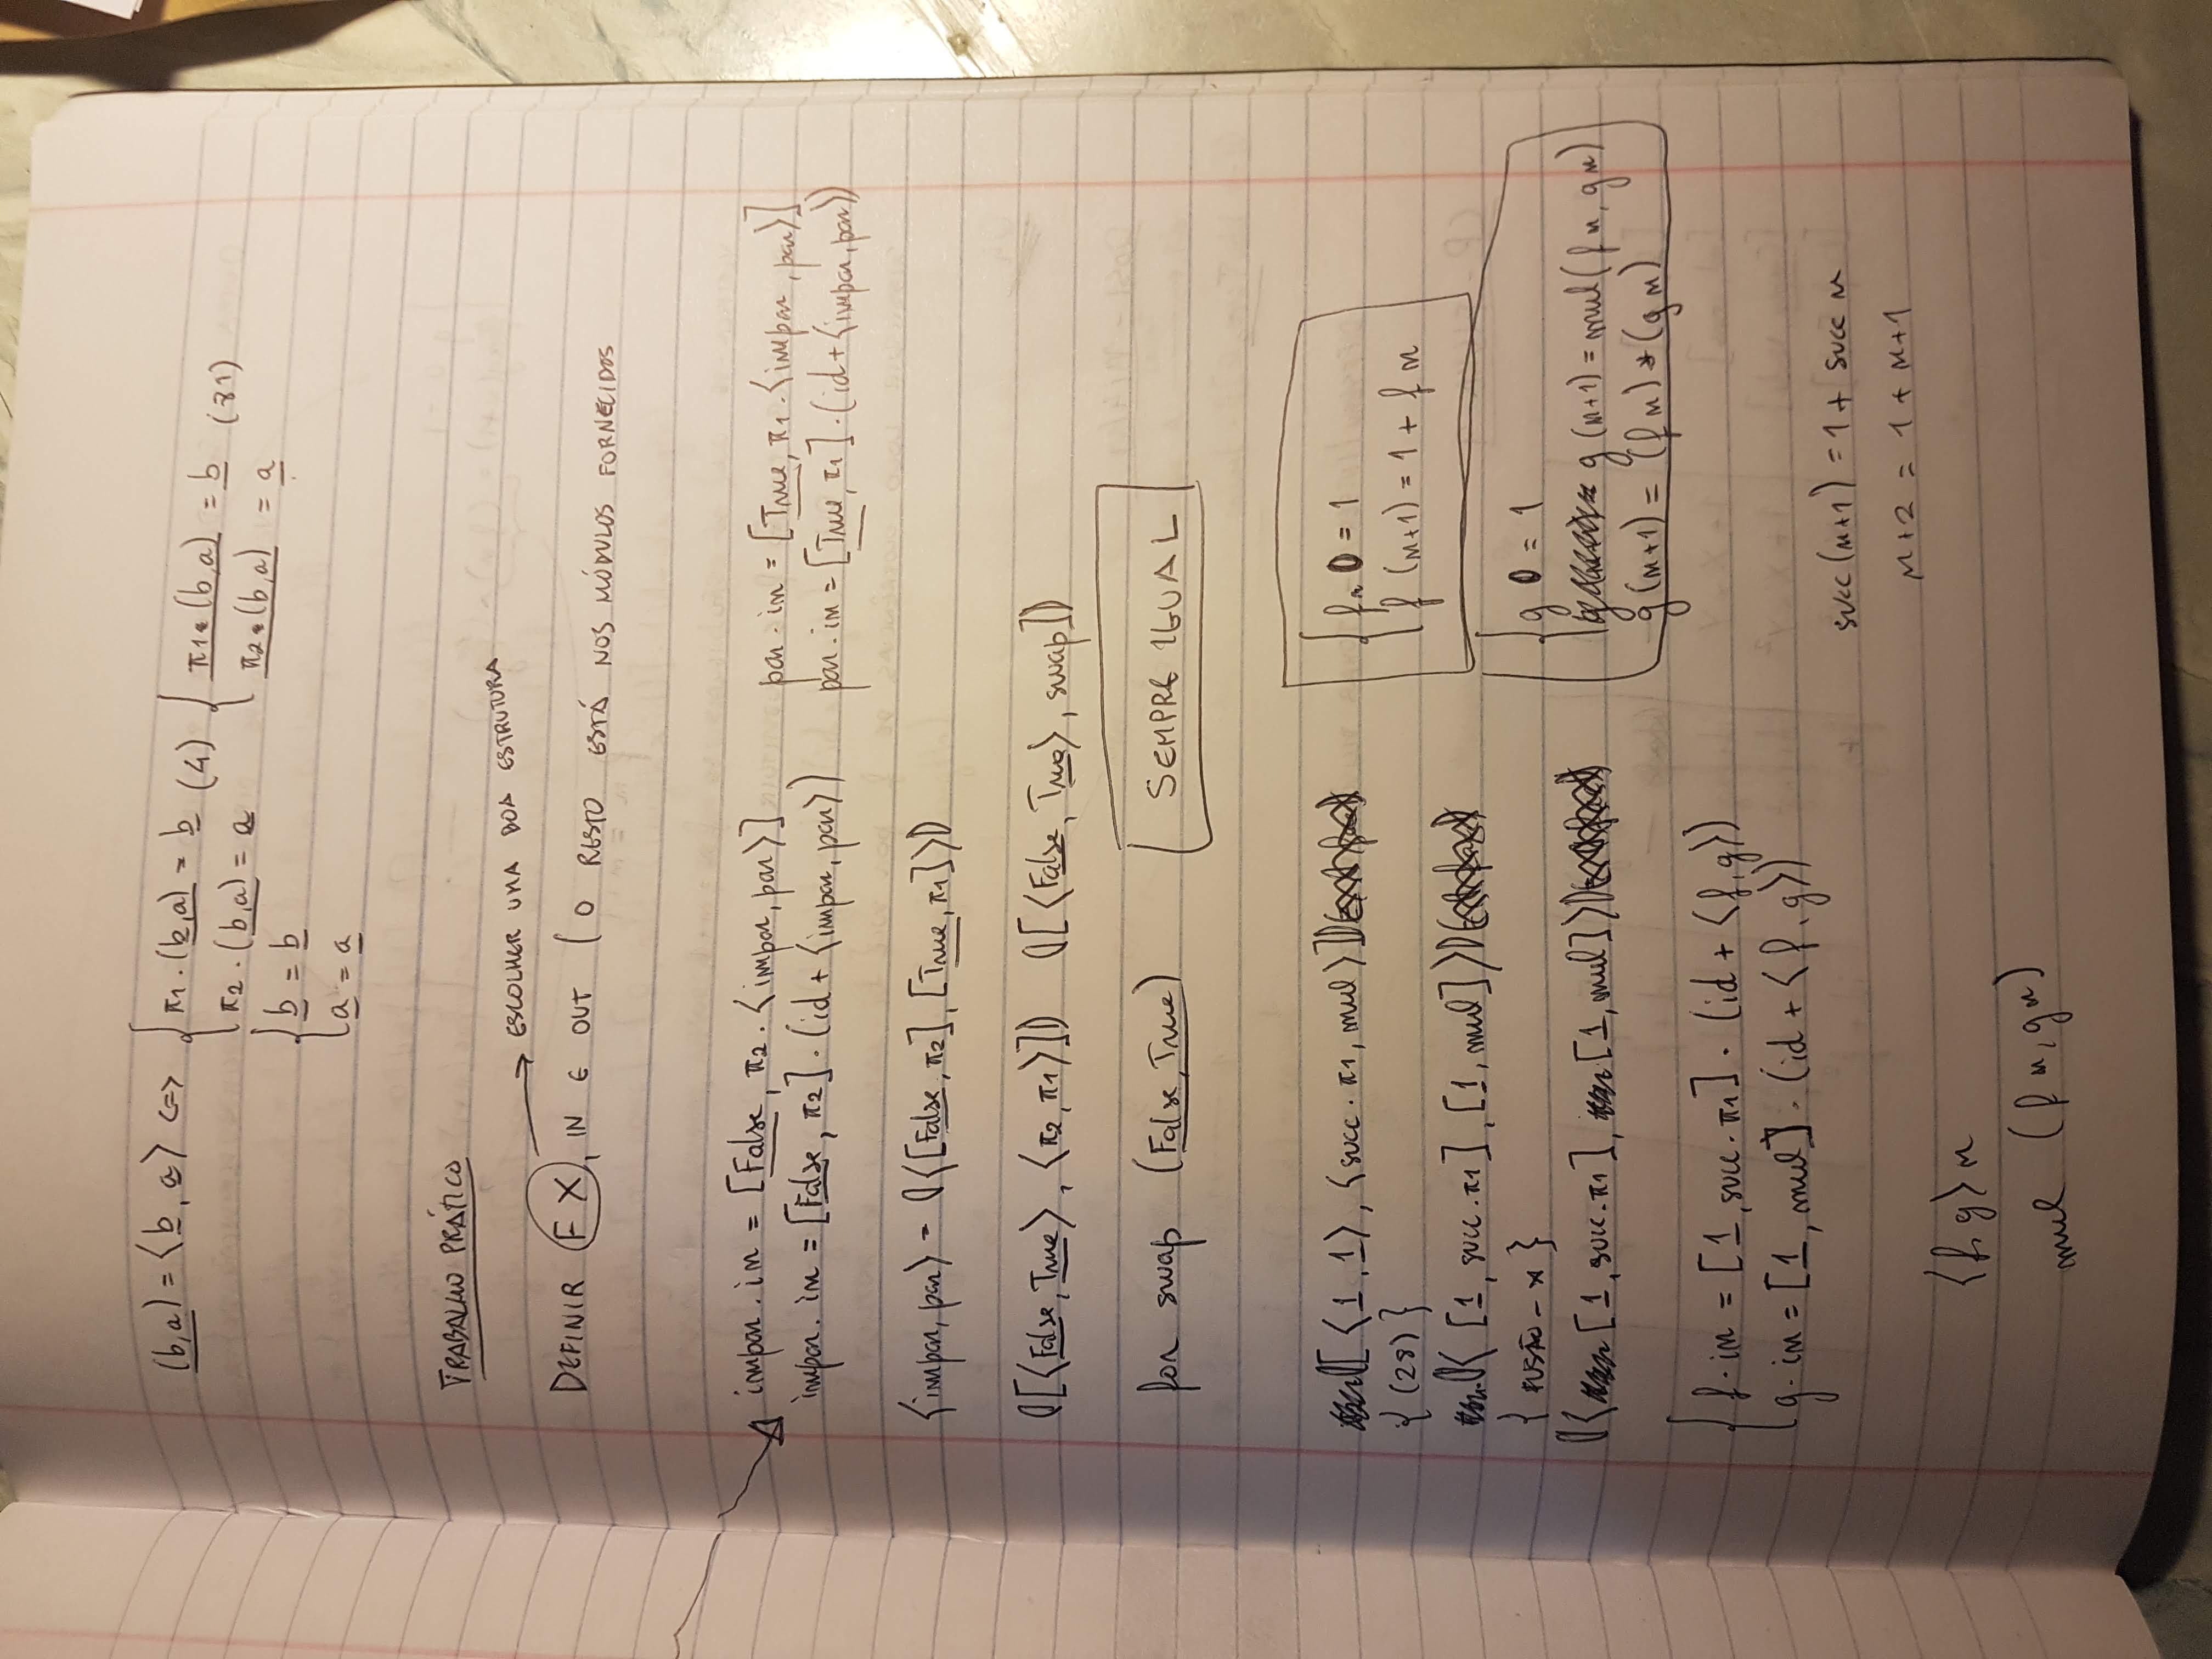 (b,a) = ⟨b, a⟩ <=> { π1 . (b,a) = b (4) { π1 . (b,a) = b (81)
π2 . (b,a) = a π2 . (b,a) = a
{ b = b
a = a
TRABALHO PRÁTICO
→ ESCOLHER UMA BOA ESTRUTURA
DEFINIR F X, IN E OUT ( O RESTO ESTÁ NOS MÓDULOS FORNECIDOS
impar . in = [False, π2 . ⟨impar, par⟩] par . in = [True, π1 . ⟨impar, par⟩]
impar . in = [False, π2] . (id + ⟨impar, par⟩) par . in = [True, π1] . (id + ⟨impar, par⟩)
⟨impar, par⟩ = ⦇⟨[False, π2], [True, π1]⟩⦈
⦇[⟨False, True⟩, ⟨π2, π1⟩]⦈ ⦇[⟨False, True⟩, swap]⦈
for swap (False, True) SEMPRE IGUAL
⦇[⟨1, 1⟩, ⟨succ . π1, mul⟩]⦈
{ (28) }
⦇⟨[1, succ . π1], [1, mul]⟩⦈
{ FUSÃO - x }
⦇⟨[1, succ . π1], [1, mul]⟩⦈
{ f . in = [1, succ . π1] . (id + ⟨f, g⟩)
g . in = [1, mul] . (id + ⟨f, g⟩)
⟨f, g⟩ n
mul (f n, g n)
{ f 0 = 1
f (n+1) = 1 + f n
{ g 0 = 1
g (n+1) = mul (f n, g n)
g (n+1) = (f n) * (g n)
succ (n+1) = 1 + succ n
n+2 = 1 + n+1